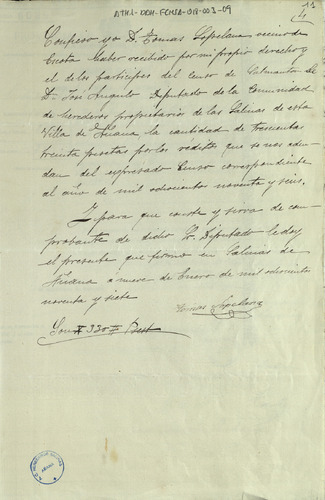 ATHA-DOH-FCMSA-019-003-09
11
4
Confieso yo D. Tomas Sopelana vecino de
haber recibido por mi propio derecho y
el de los participes del Censo de Calmantor de
D. José Angulo Diputado de la Comunidad
de herederos propietarios de las Salinas de esta
Villa de Añana la cantidad de trescientas
treinta pesetas por los reditos que se nos adeu
dan del expresado Censo correspondiente
al año de mil ochocientos noventa y seis.
Y para que conste y sirva de com
probante de dicho Sr. Diputado le doy
el presente que firmo en Salinas de
Añana a nueve de Enero de mil ochocientos
noventa y siete
Tomas Sopelana
Son 330 Pest